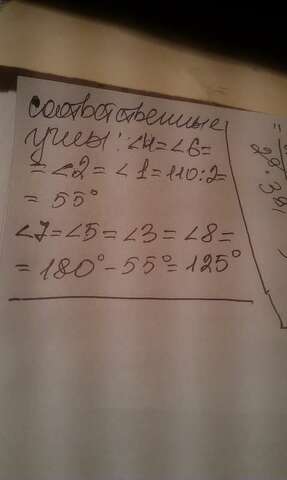 соответственные
углы: ∠4=∠6=
=∠2=∠1=110:2=
=55°
∠7=∠5=∠3=∠8=
=180°-55°=125°